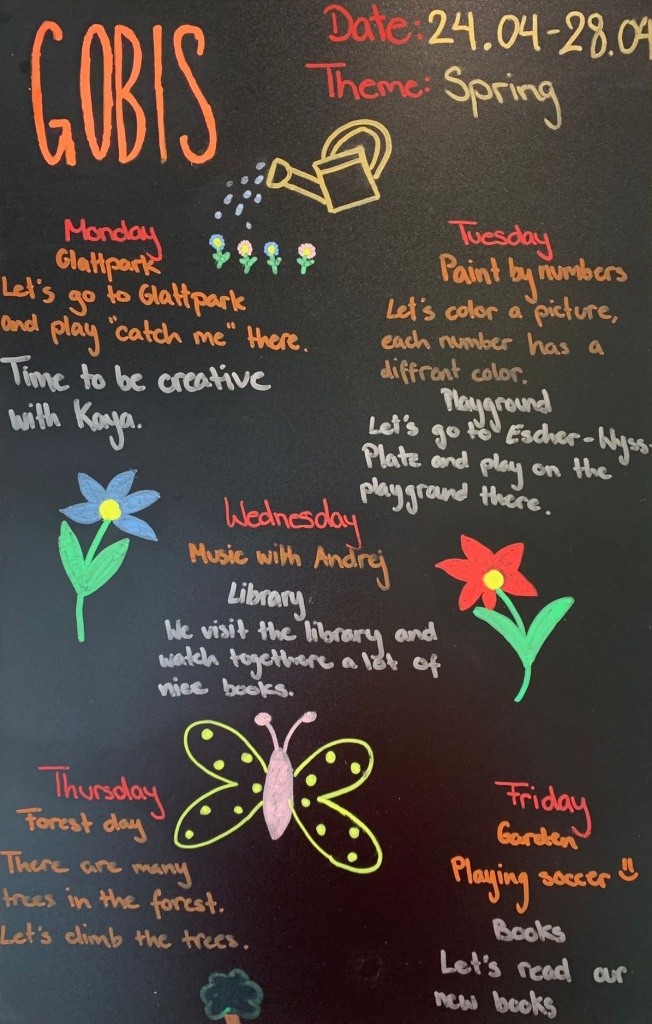 GOBIS
Date: 24.04-28.04
Theme: Spring
Monday
Glattpark
Let's go to Glattpark
and play "catch me" there.
Time to be creative
with Kaya.
Tuesday
Paint by numbers
Let's color a picture,
each number has a
diffrent color.
Playground
Let's go to Escher-Wyss-
Platz and play on the
playground there.
Wednesday
Music with Andrej
Library
We visit the library and
watch togethere a lot of
nice books.
Thursday
Forest day
There are many
trees in the forest.
Let's climb the trees.
Friday
Garden
Playing soccer
Books
Let's read our
new books